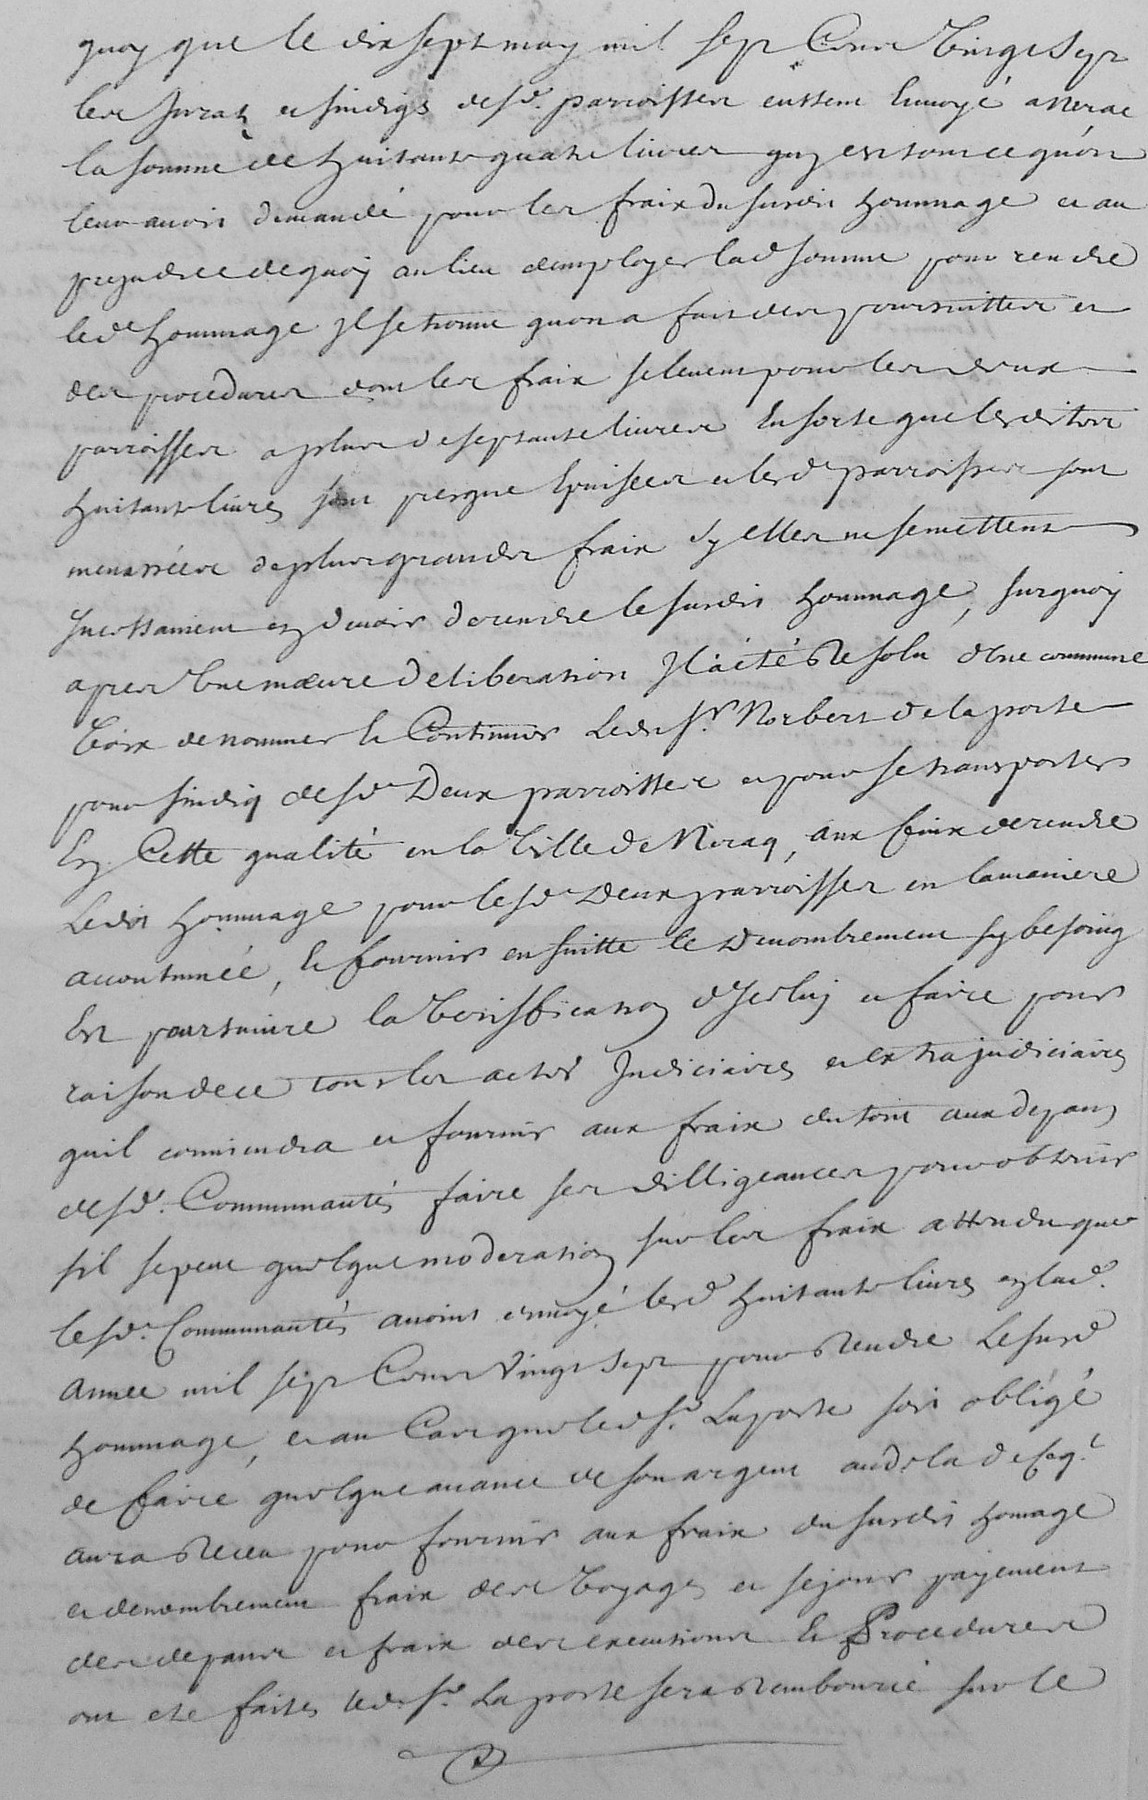 quoy que le dix sept may mil sept Cens Vingt Sept
les Jurats et sindigs desd. parroisses eussent Envoyé a Nerac
la somme de huitante quatre livres quy est tout ce qu'on
leur avoit demandé pour les fraix du susdit hommage et au
prejudice de quoy au lieu demployer lad somme pour rendre
led hommage Il se trouve quon a fait des poursuittes et
des procedures dont les fraix se levent pour les deux
parroisses a plus de septante livres En sorte que lesdittes
huitante livres sont presque Epuisées et lesd parroisses sont
menassées de plus grandes fraix sy elles ne se mettent
Incessament en devoir de rendre le susdit hommage, surquoy
apres Une meure deliberation Il a été Resolu dUne commune
Voix de nommer Et Continuer Ledit Sr. Norbert de Laporte
pour sindiq desd Deux parroisses et pour se transporter
En Cette qualité en la Ville de Neraq, aux feins de rendre
Ledit hommage pour lesd Deux parroisses en la maniere
accoutumée, Et fournir en suitte le Denombrement sy besoing
Est poursuivre la Veriffication dIceluy et faire pour
raison de ce tous les actes Judiciaires et extrajudiciaires
quil conviendra et fournir aux fraix du tout aux depans
desd. Communautés faire ses dilligeances pour obtenir
sil se peut quelque moderation sur les fraix attendu que
lesd. Communautés avoint envoyé lesd huitante livres en lad.
année mil sept Cens Vingt Sept pour Rendre Le susd
hommage, et au Cas que led Sr. Laporte soit obligé
de faire quelque avance de son argent au dela de ce q.
aura Receu pour fournir aux fraix du susdit homage
et denombrement fraix des Voyages et sejours payement
des depans et fraix des executions Et Procedures
ont eté faites led. Sr. Laporte sera Rembourcé sur le